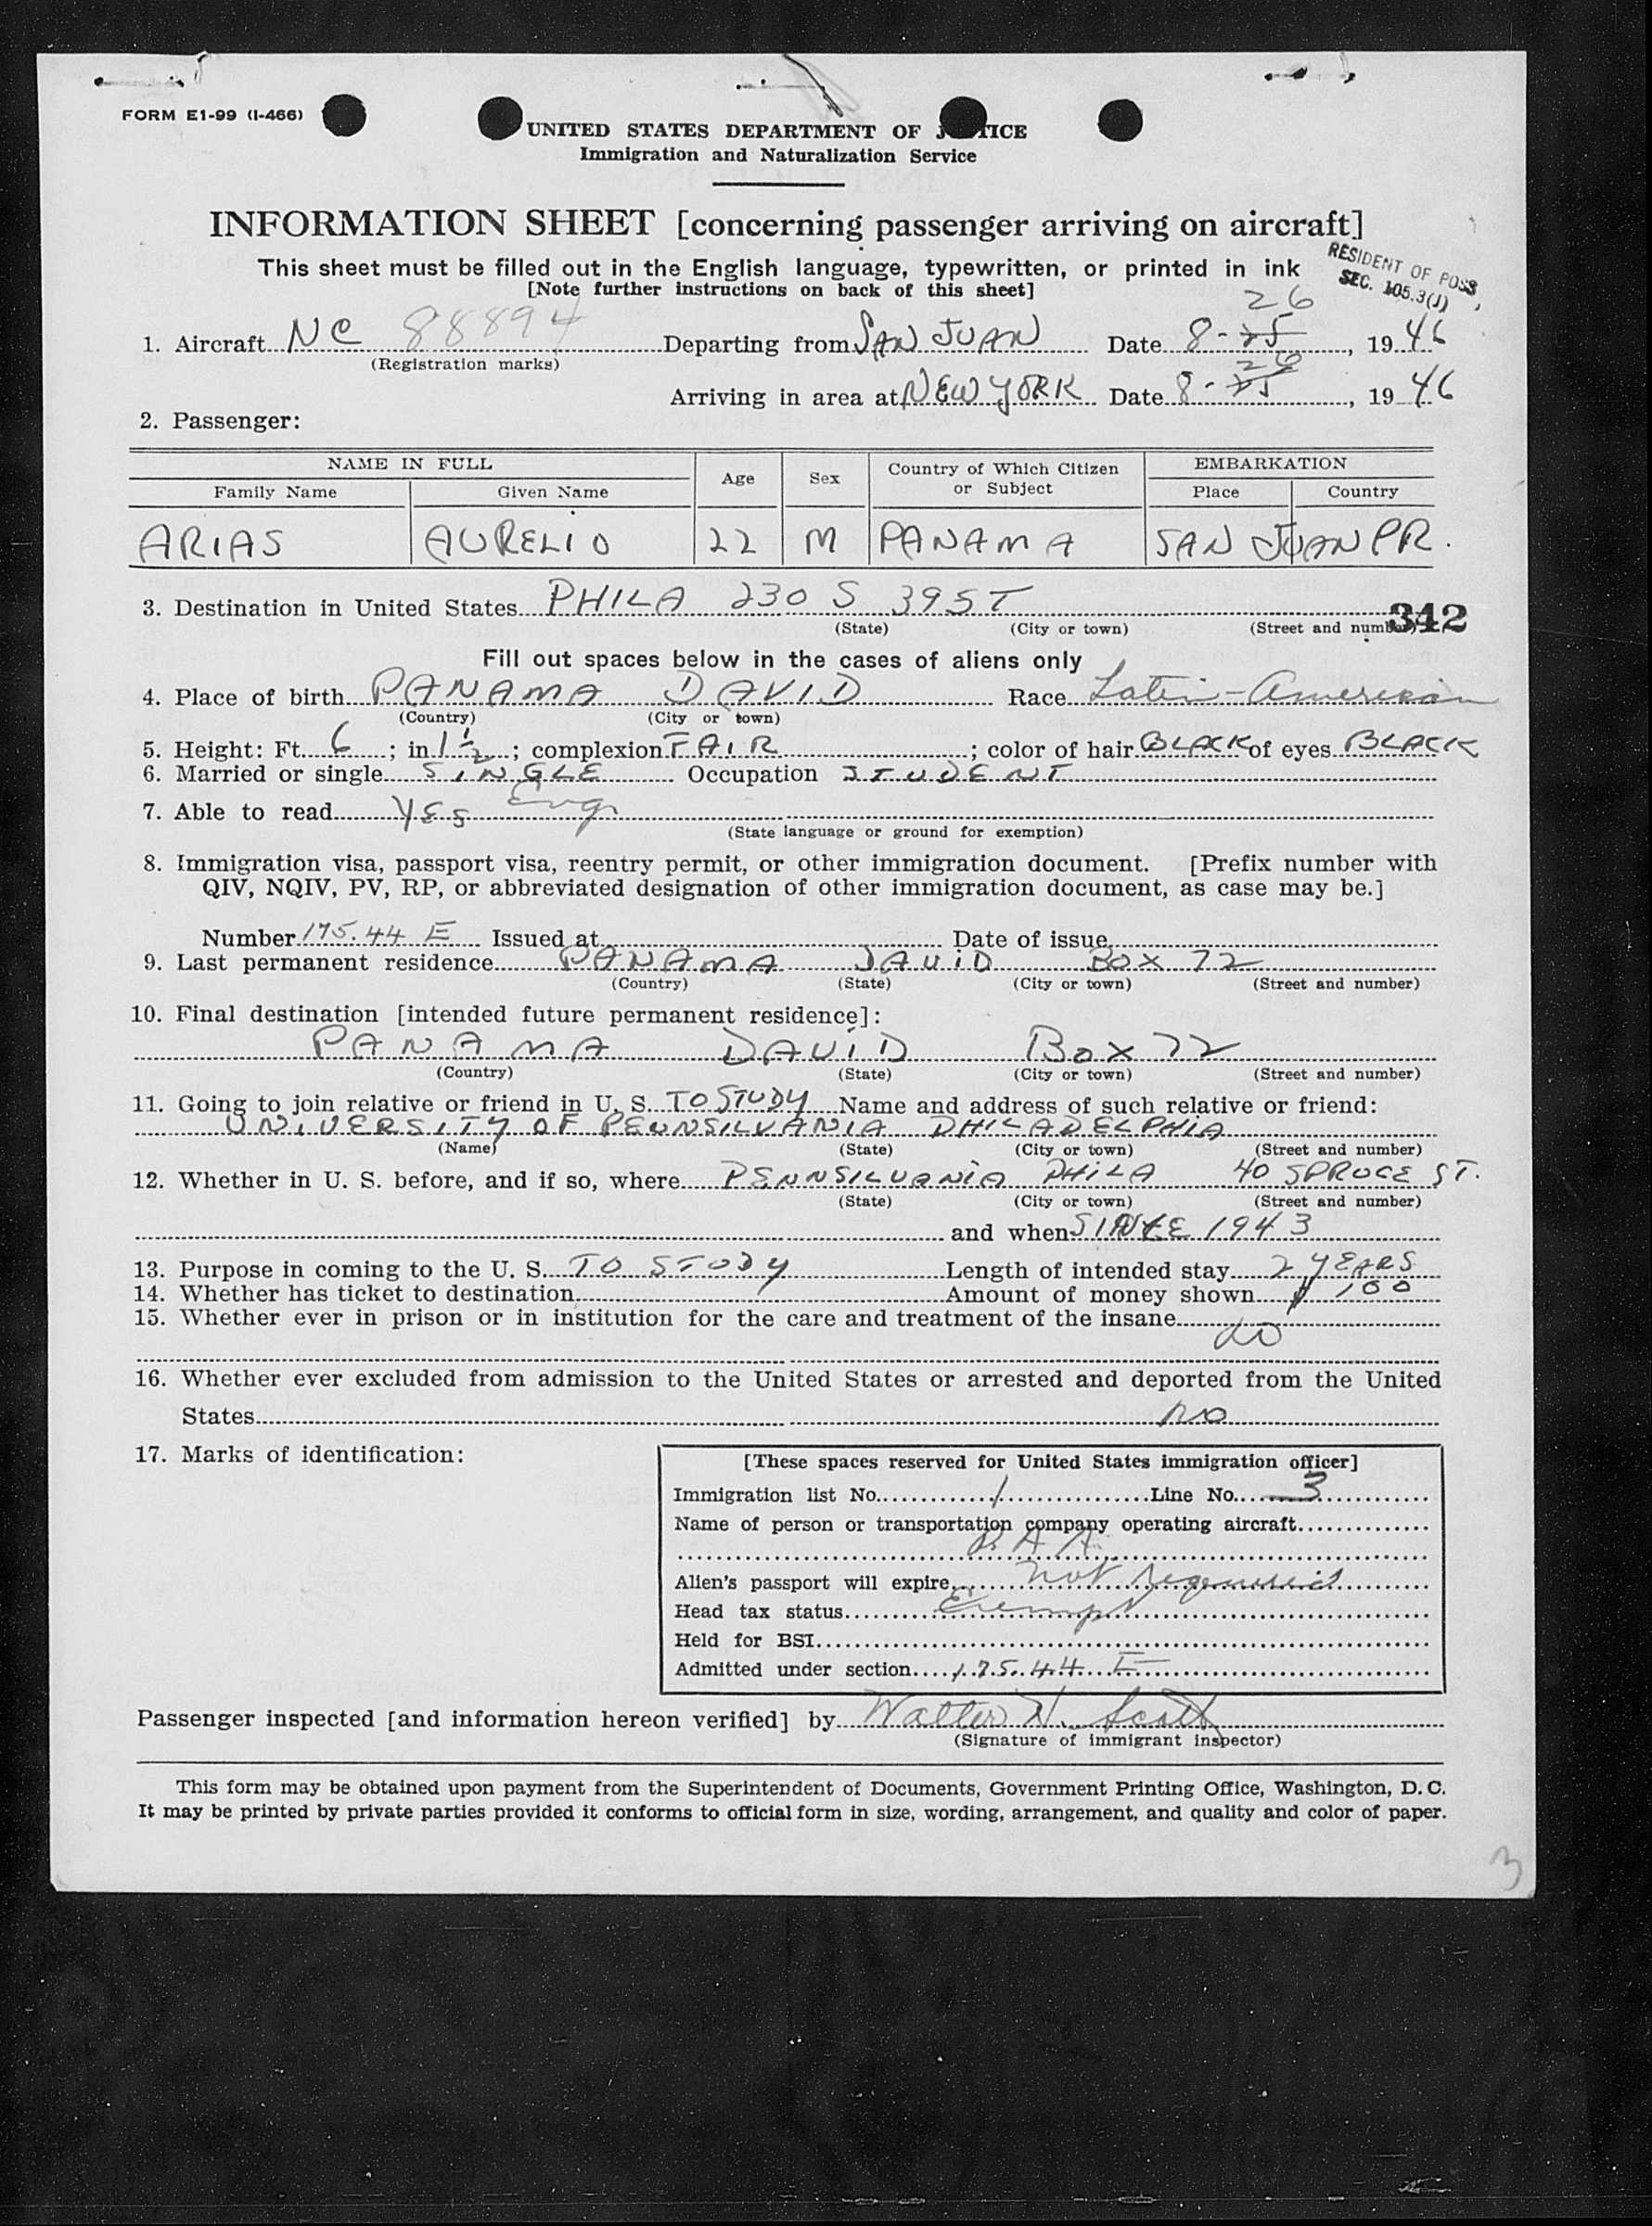 FORM E1-99 (I-466)
UNITED STATES DEPARTMENT OF J TICE
Immigration and Naturalization Service
INFORMATION SHEET [concerning passenger arriving on aircraft]
This sheet must be filled out in the English language, typewritten, or printed in ink
[Note further instructions on back of this sheet]
RESIDENT OF POSS,
SEC. 105.3(J)
26
1. Aircraft NC 88894 Departing from SAN JUAN Date 8-25, 1946
(Registration marks)
26
Arriving in area at NEW YORK Date 8-25, 1946
2. Passenger:
NAME IN FULL Age Sex Country of Which Citizen or Subject EMBARKATION
Family Name Given Name Place Country
ARIAS AURELIO 22 M PANAMA SAN JUAN PR.
3. Destination in United States PHILA 230 S 39 ST
(State) (City or town) (Street and number) 342
Fill out spaces below in the cases of aliens only
4. Place of birth PANAMA DAVID Race Latin-American
(Country) (City or town)
5. Height: Ft. 6; in 1½; complexion FAIR; color of hair BLACK of eyes BLACK
6. Married or single SINGLE Occupation STUDENT
7. Able to read YES Eng.
(State language or ground for exemption)
8. Immigration visa, passport visa, reentry permit, or other immigration document. [Prefix number with
QIV, NQIV, PV, RP, or abbreviated designation of other immigration document, as case may be.]
Number 175.44 E Issued at Date of issue
9. Last permanent residence PANAMA DAVID BOX 72
(Country) (State) (City or town) (Street and number)
10. Final destination [intended future permanent residence]:
PANAMA DAVID BOX 72
(Country) (State) (City or town) (Street and number)
11. Going to join relative or friend in U. S. TO STUDY Name and address of such relative or friend:
UNIVERSITY OF PENNSILVANIA PHILADELPHIA
(Name) (State) (City or town) (Street and number)
12. Whether in U. S. before, and if so, where PENNSILVANIA PHILA 40 SPRUCE ST.
(State) (City or town) (Street and number)
and when SINCE 1943
13. Purpose in coming to the U. S. TO STUDY Length of intended stay 2 YEARS
14. Whether has ticket to destination Amount of money shown $ 100
15. Whether ever in prison or in institution for the care and treatment of the insane
NO
16. Whether ever excluded from admission to the United States or arrested and deported from the United
States NO
17. Marks of identification:
[These spaces reserved for United States immigration officer]
Immigration list No. 1 Line No. 3
Name of person or transportation company operating aircraft
P. A. A.
Alien's passport will expire not required
Head tax status Exempt
Held for BSI
Admitted under section 175.44 E
Passenger inspected [and information hereon verified] by Walter H. Scott
(Signature of immigrant inspector)
This form may be obtained upon payment from the Superintendent of Documents, Government Printing Office, Washington, D. C.
It may be printed by private parties provided it conforms to official form in size, wording, arrangement, and quality and color of paper.
3